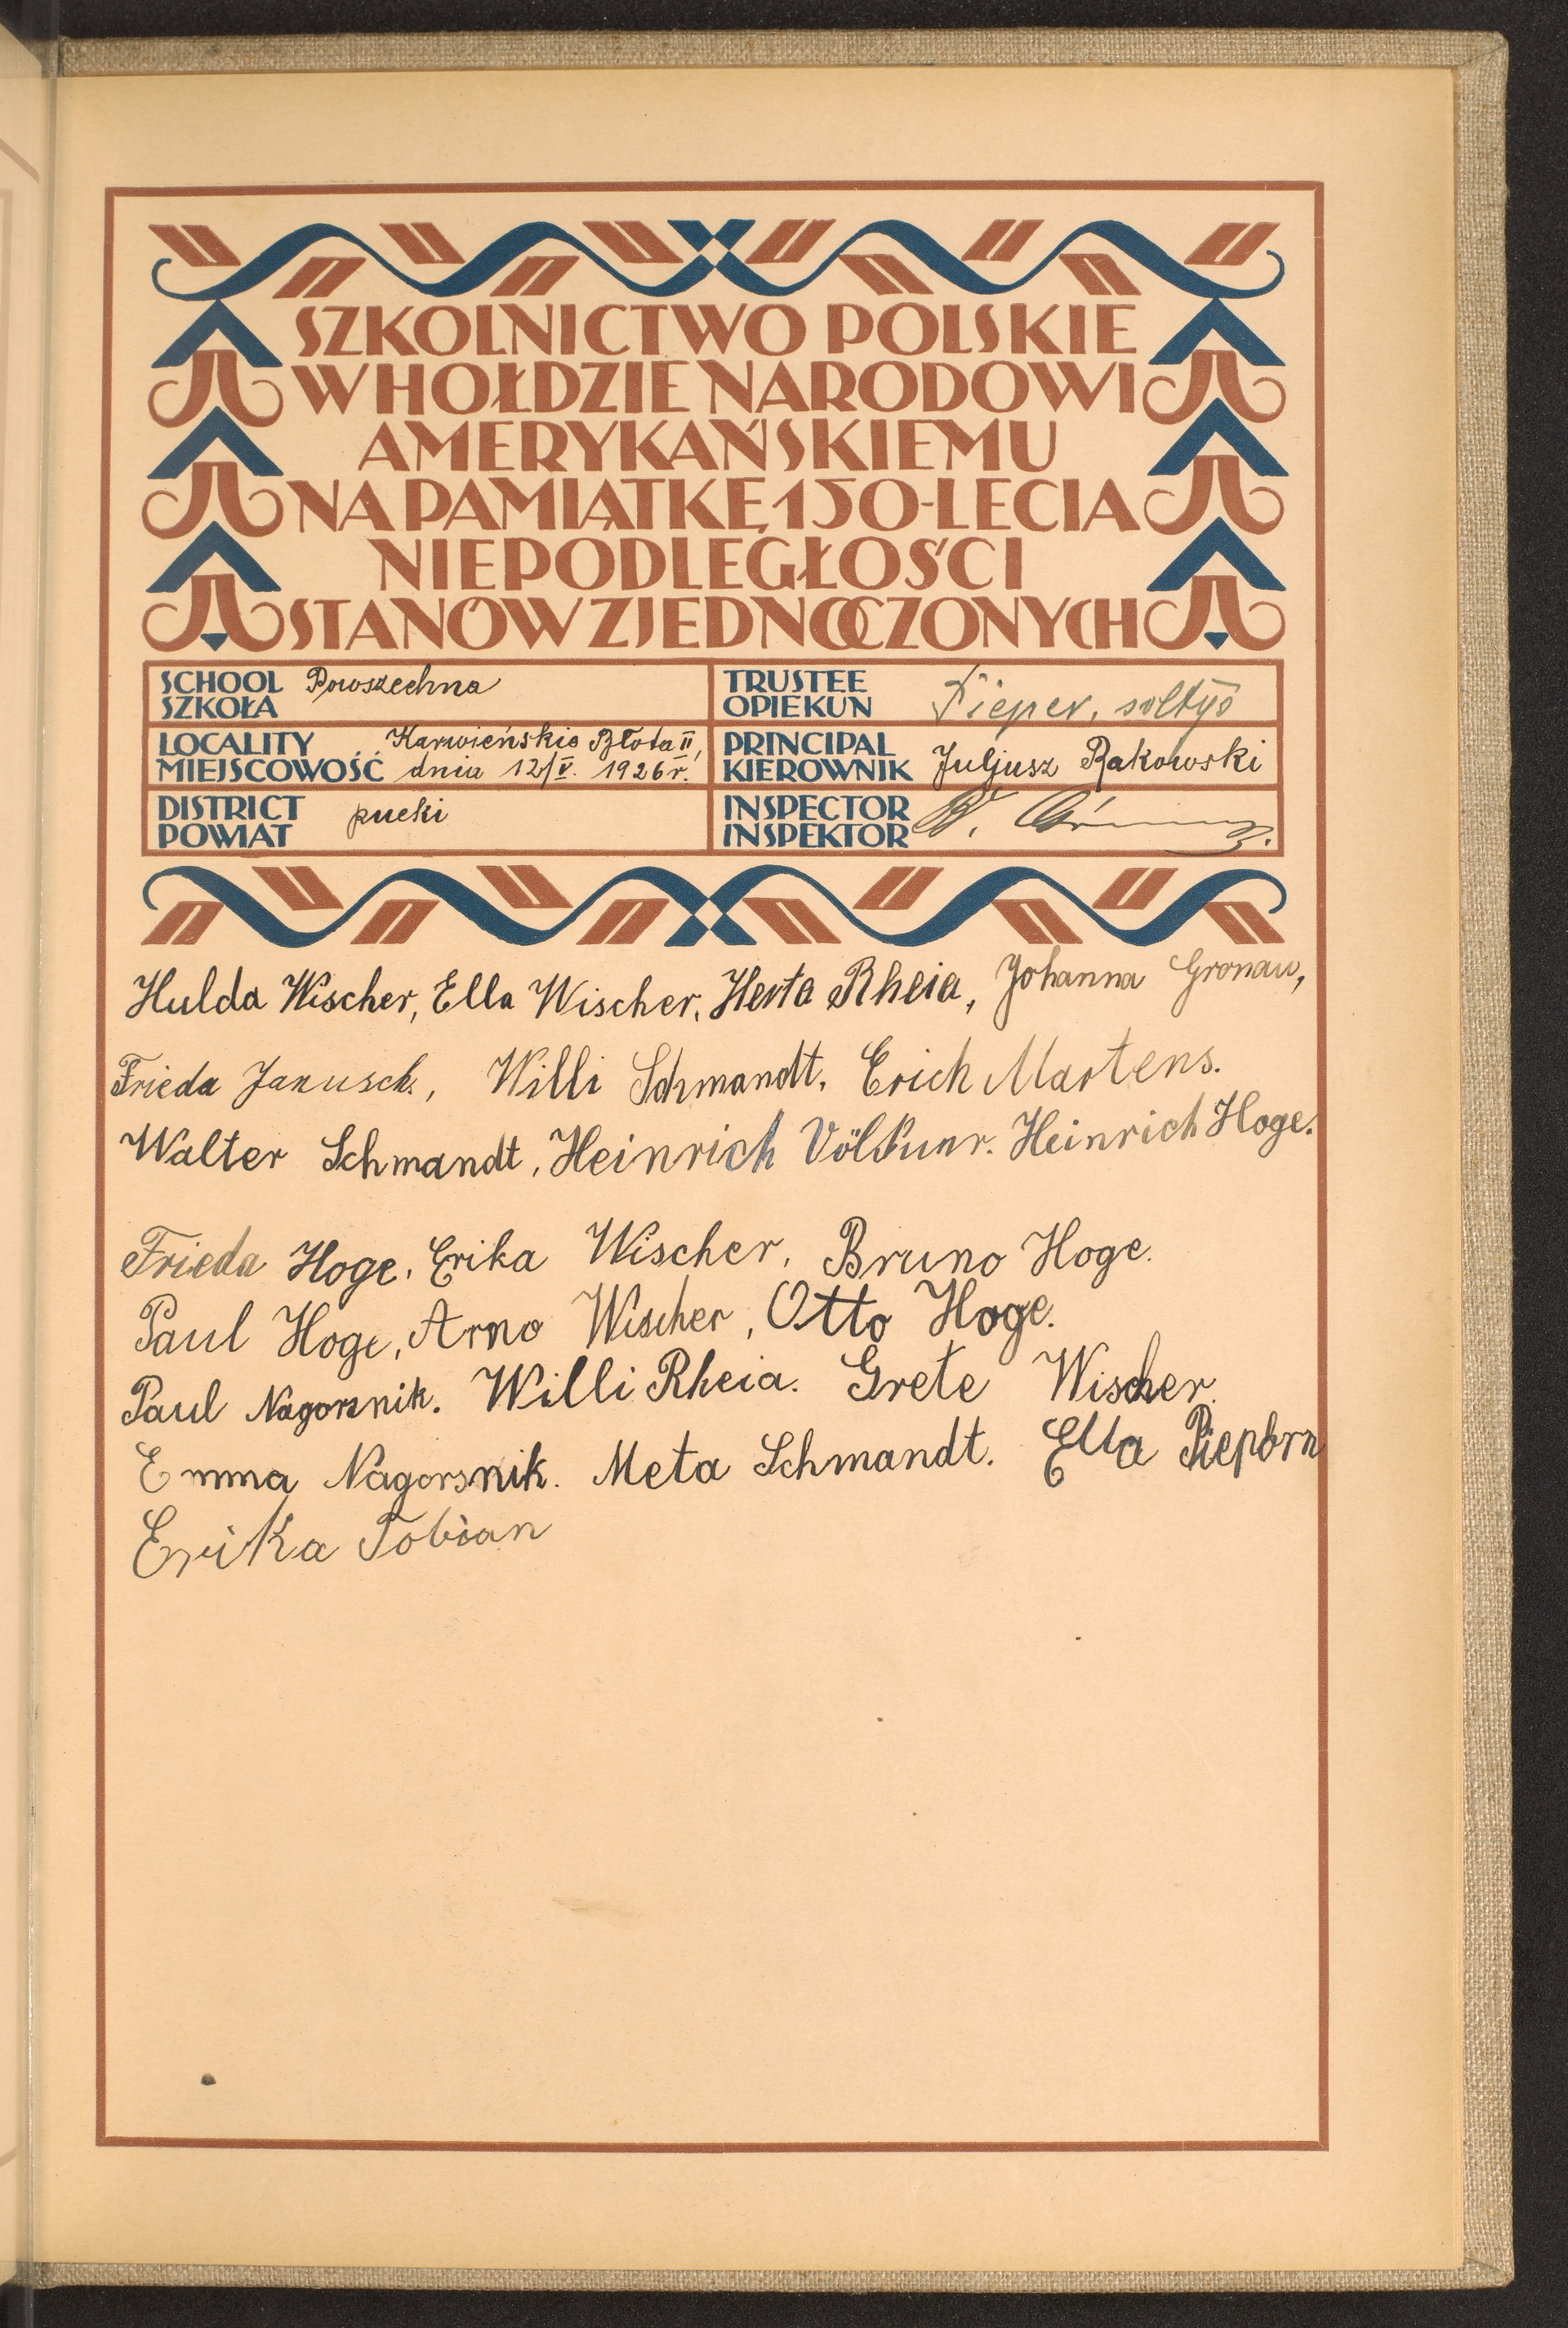 SZKOLNICTWO POLSKIE
W HOŁDZIE NARODOWI
AMERYKAŃSKIEMU
NA PAMIĄTKĘ 150-LECIA
NIEPODLEGŁOŚCI
STANÓW ZJEDNOCZONYCH
SCHOOL Powszechna
SZKOŁA
TRUSTEE
OPIEKUN Pieper, sołtys
LOCALITY Karwieńskie Błota II,
MIEJSCOWOŚĆ dnia 12/V. 1926 r.
PRINCIPAL
KIEROWNIK Juljusz Rakowski
DISTRICT
POWIAT pucki
INSPECTOR
INSPEKTOR
Hulda Wischer, Ella Wischer, Herta Rheia, Johanna Gronau,
Frieda Janusch., Willi Schmandt, Erich Martens.
Walter Schmandt, Heinrich Heinrich Hoge.
Frieda Hoge, Erika Wischer, Bruno Hoge.
Paul Hoge, Arno Wischer, Otto Hoge.
Paul Nagorsnik. Willi Rheia. Grete Wischer.
Emma Nagorsnik. Meta Schmandt. Ella
Erika Tobian